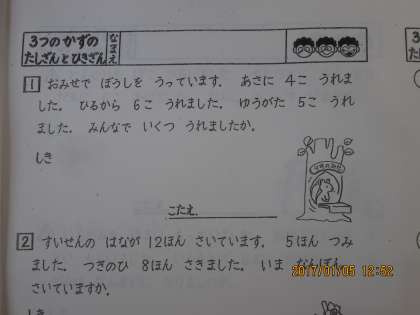 3つのかずの
たしざんとひきざん
なまえ
1 おみせで ぼうしを うっています。 あさに 4こ うれま
した。 ひるから 6こ うれました。 ゆうがた 5こ うれ
ました。 みんなで いくつ うれましたか。
しき
こたえ
2 すいせんの はなが 12ほん さいています。 5ほん つみ
ました。 つぎのひ 8ほん さきました。 いま なんぼん
さいていますか。
しき
2017/01/05 12:52